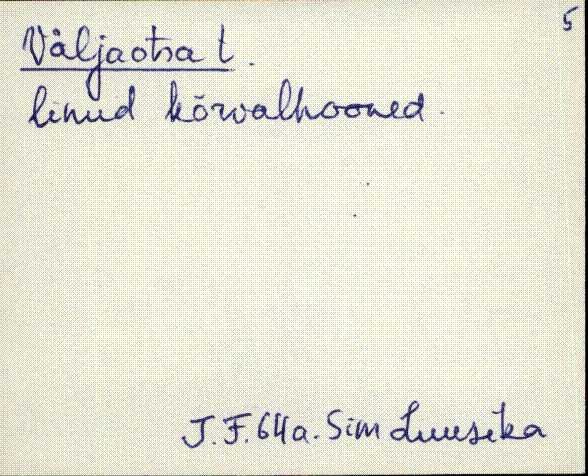 5
Väljaotsa t.
linud kõrvalhooned.
J. F. 64 a. Sim Luusika